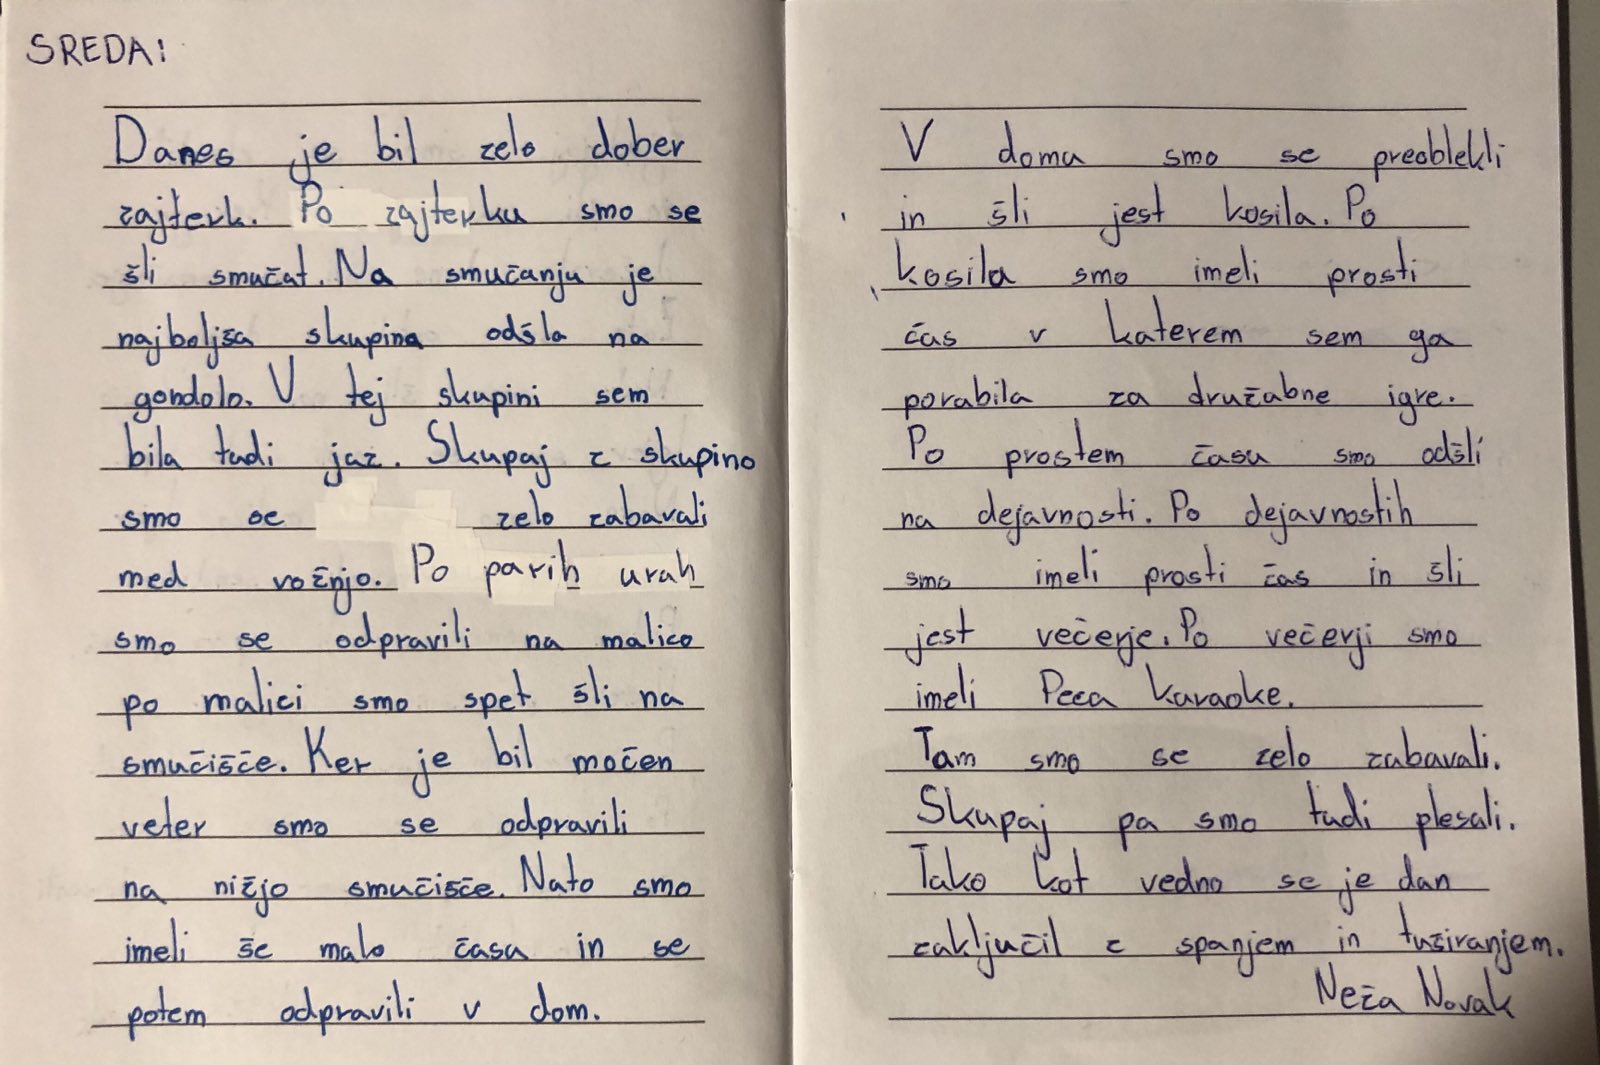 SREDA:
Danes je bil zelo dober
zajterk. Po zajterku smo se
šli smučat. Na smučanju je
najboljša skupina odšla na
gondolo. V tej skupini sem
bila tudi jaz. Skupaj z skupino
smo se zelo zabavali
med vožnjo. Po parih urah
smo se odpravili na malico
po malici smo spet šli na
smučišče. Ker je bil močen
veter smo se odpravili
na nižjo smučišče. Nato smo
imeli še malo časa in se
potem odpravili v dom.
V domu smo se preoblekli
in šli jest kosila. Po
kosila smo imeli prosti
čas v katerem sem ga
porabila za družabne igre.
Po prostem času smo odšli
na dejavnosti. Po dejavnostih
smo imeli prosti čas in šli
jest večerje. Po večerji smo
imeli Peca karaoke.
Tam smo se zelo zabavali.
Skupaj pa smo tudi plesali.
Tako kot vedno se je dan
zaključil z spanjem in tuširanjem.
Neža Novak